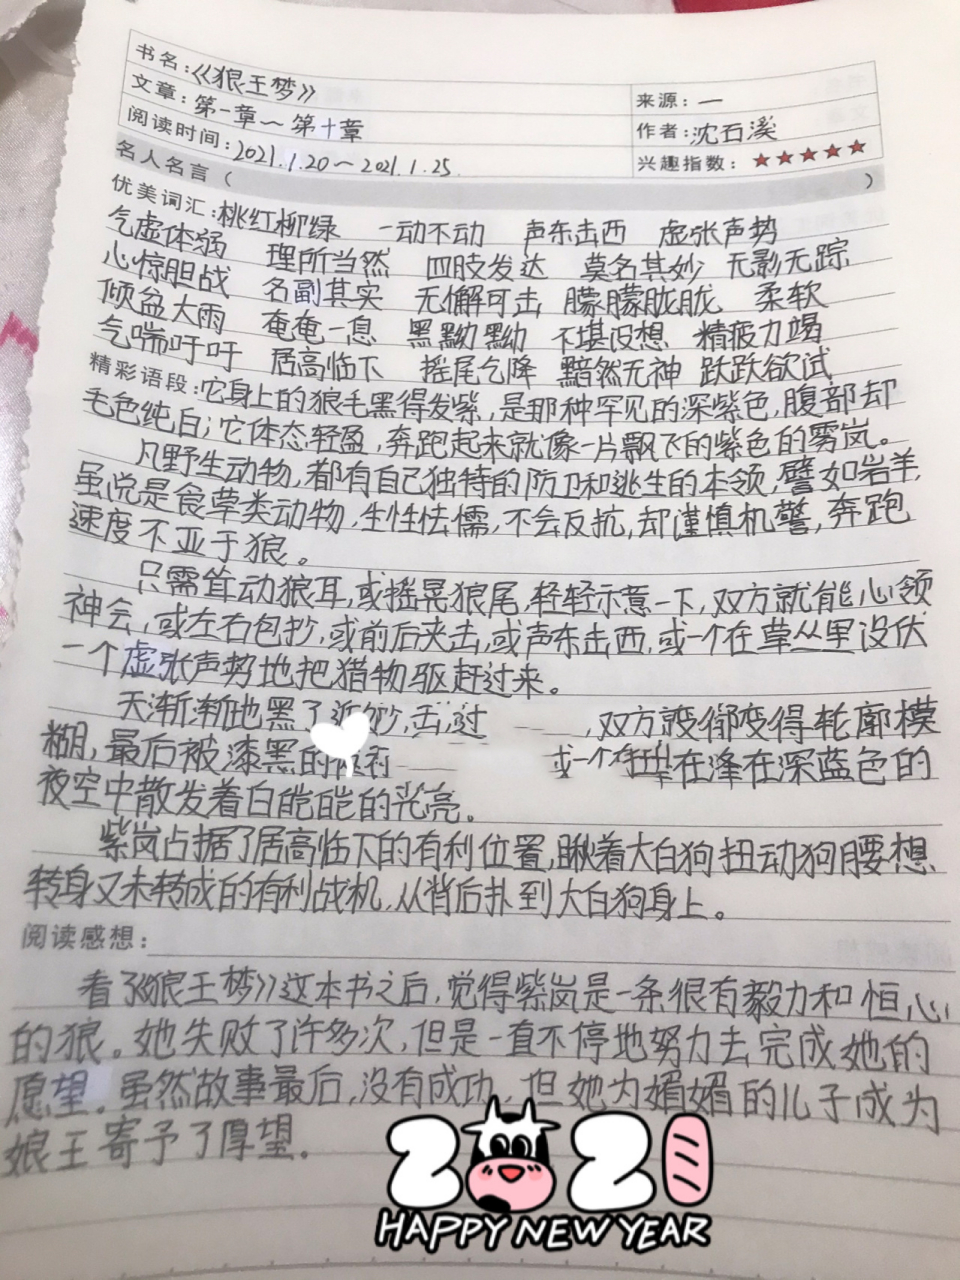 书名:《狼王梦》
来源: 一
文章: 第一章～第十章
作者: 沈石溪
阅读时间: 2021.1.20～2021.1.25
兴趣指数: ★★★★★
名人名言 ( )
优美词汇: 桃红柳绿 一动不动 声东击西 虚张声势
气虚体弱 理所当然 四肢发达 莫名其妙 无影无踪
心惊胆战 名副其实 无懈可击 朦朦胧胧 柔软
倾盆大雨 奄奄一息 黑黝黝 不堪设想 精疲力竭
气喘吁吁 居高临下 摇尾乞降 黯然无神 跃跃欲试
精彩语段: 它身上的狼毛黑得发紫,是那种罕见的深紫色,腹部却
毛色纯白;它体态轻盈,奔跑起来就像一片飘飞的紫色的雾岚。
凡野生动物,都有自己独特的防卫和逃生的本领,譬如岩羊,
虽说是食草类动物,生性怯懦,不会反抗,却谨慎机警,奔跑
速度不亚于狼。
只需耸动狼耳,或摇晃狼尾,轻轻示意一下,双方就能心领
神会,或左右包抄,或前后夹击,或声东击西,或一个在草丛里设伏
一个虚张声势地把猎物驱赶过来。
天渐渐地黑了 过 ,双方 变得轮廓模
糊,最后被漆黑的 在深蓝色的
夜空中散发着白皑皑的光亮。
紫岚占据了居高临下的有利位置,瞅着大白狗扭动狗腰想
转身又未转成的有利战机,从背后扑到大白狗身上。
阅读感想:
看了《狼王梦》这本书之后,觉得紫岚是一条很有毅力和恒心
的狼。她失败了许多次,但是一直不停地努力去完成她的
愿望。虽然故事最后,没有成功,但她为媚媚的儿子成为
狼王寄予了厚望.
2021
HAPPY NEW YEAR